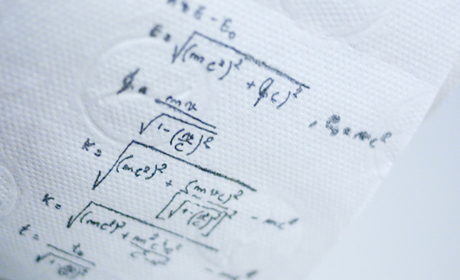 K = E - E₀
E = √((mc²)² + (pc)²)
p = mv / √(1-(v/c)²) , E₀ = mc²
K = √((mc²)² + (mvc)² / [√(1-(v/c)²)]²) - mc²
K = √((mc²)² + m²c²v² / 1-(v/c)²) - mc²
t = t₀ / √(1-(v/c)²)